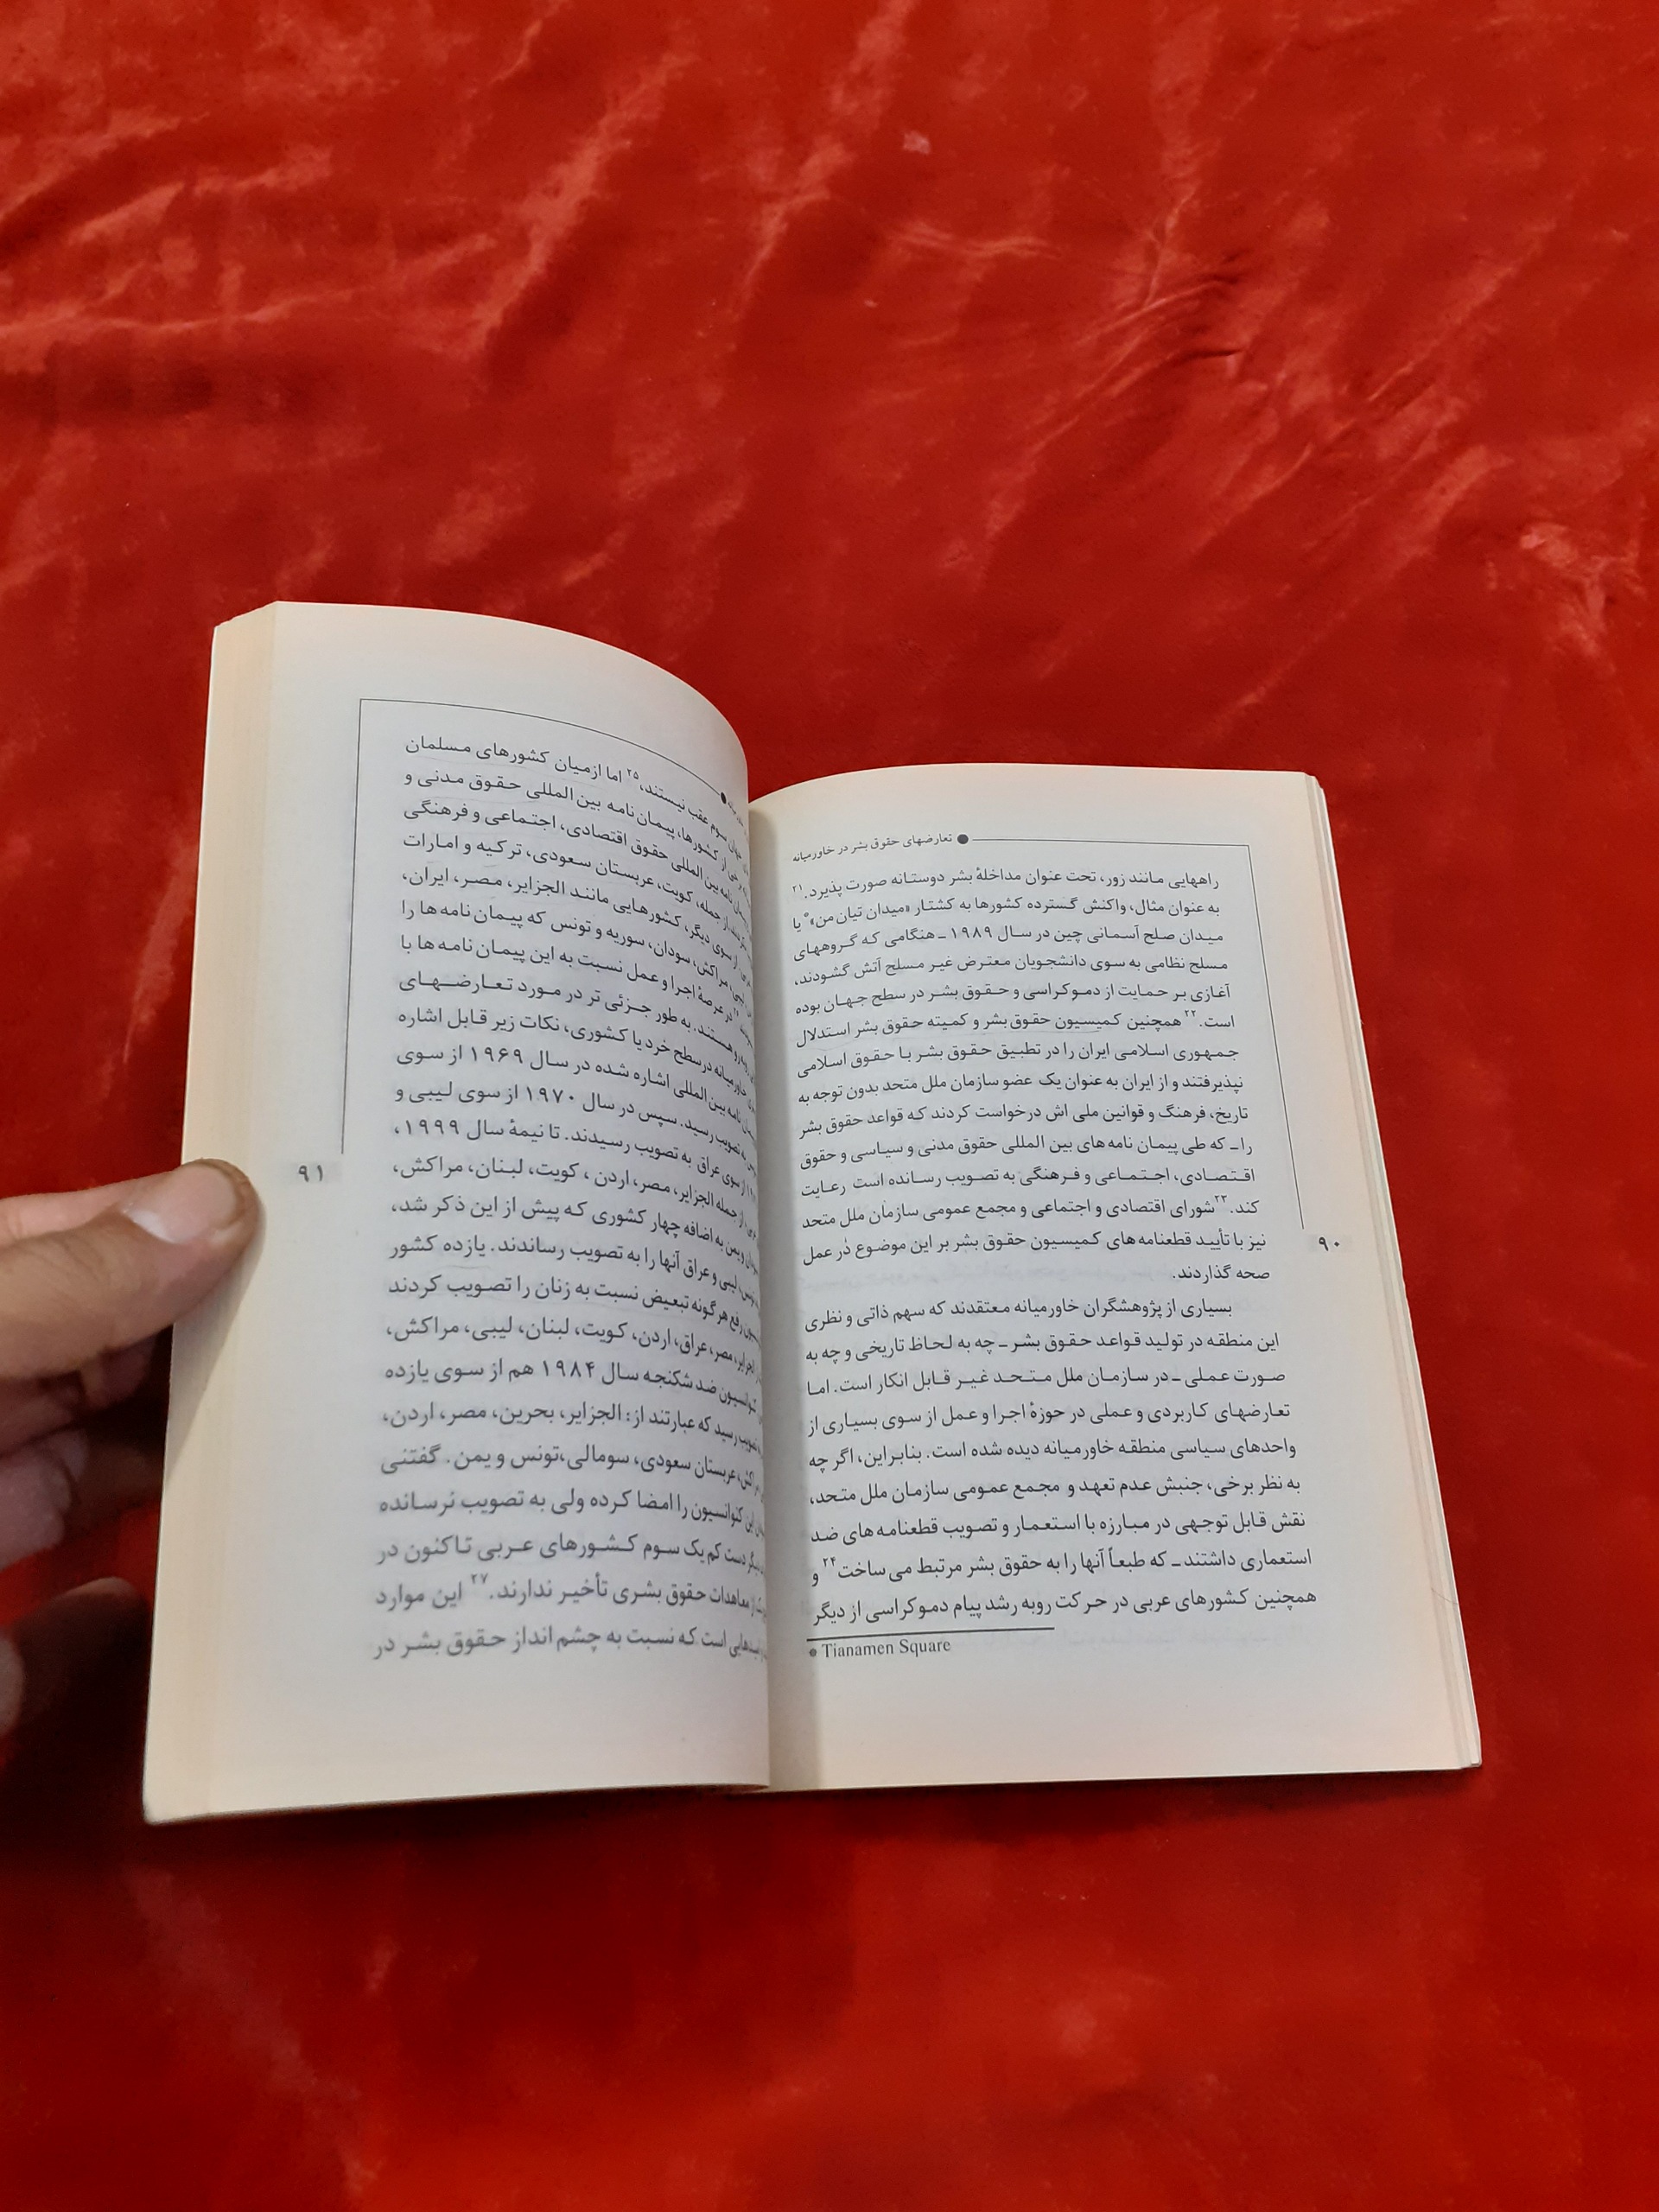 تعارضهای حقوق بشر در خاورمیانه
راههایی مانند زور، تحت عنوان مداخلهٔ بشر دوستانه صورت پذیرد.۲۱
به عنوان مثال، واکنش گسترده کشورها به کشتار «میدان تیان من»* یا
میدان صلح آسمانی چین در سال ۱۹۸۹ ـ هنگامی که گروههای
مسلح نظامی به سوی دانشجویان معترض غیر مسلح آتش گشودند،
آغازی بر حمایت از دموکراسی و حقوق بشر در سطح جهان بوده
است.۲۲ همچنین کمیسیون حقوق بشر و کمیته حقوق بشر استدلال
جمهوری اسلامی ایران را در تطبیق حقوق بشر با حقوق اسلامی
نپذیرفتند و از ایران به عنوان یک عضو سازمان ملل متحد بدون توجه به
تاریخ، فرهنگ و قوانین ملی اش درخواست کردند که قواعد حقوق بشر
را ـ که طی پیمان نامه های بین المللی حقوق مدنی و سیاسی و حقوق
اقتصادی، اجتماعی و فرهنگی به تصویب رسانده است رعایت
کند.۲۳ شورای اقتصادی و اجتماعی و مجمع عمومی سازمان ملل متحد
نیز با تأیید قطعنامه های کمیسیون حقوق بشر بر این موضوع در عمل
صحه گذاردند.
بسیاری از پژوهشگران خاورمیانه معتقدند که سهم ذاتی و نظری
این منطقه در تولید قواعد حقوق بشر ـ چه به لحاظ تاریخی و چه به
صورت عملی ـ در سازمان ملل متحد غیر قابل انکار است. اما
تعارضهای کاربردی و عملی در حوزهٔ اجرا و عمل از سوی بسیاری از
واحدهای سیاسی منطقه خاورمیانه دیده شده است. بنابراین، اگر چه
به نظر برخی، جنبش عدم تعهد و مجمع عمومی سازمان ملل متحد،
نقش قابل توجهی در مبارزه با استعمار و تصویب قطعنامه های ضد
استعماری داشتند ـ که طبعاً آنها را به حقوق بشر مرتبط می ساخت۲۴ و
همچنین کشورهای عربی در حرکت روبه رشد پیام دموکراسی از دیگر
* Tianamen Square
۹۰
سوم عقب نیستند،۲۵ اما ازمیان کشورهای مسلمان
از کشورها، پیمان نامه بین المللی حقوق مدنی و
نامه بین المللی حقوق اقتصادی، اجتماعی و فرهنگی
از جمله، کویت، عربستان سعودی، ترکیه و امارات
از سوی دیگر، کشورهایی مانند الجزایر، مصر، ایران،
لیبی، مراکش، سودان، سوریه و تونس که پیمان نامه ها را
در عرصهٔ اجرا و عمل نسبت به این پیمان نامه ها با
هستند. به طور جزئی تر در مورد تعارضهای
خاورمیانه در سطح خرد یا کشوری، نکات زیر قابل اشاره
نامه بین المللی اشاره شده در سال ۱۹۶۹ از سوی
به تصویب رسید. سپس در سال ۱۹۷۰ از سوی لیبی و
از سوی عراق به تصویب رسیدند. تا نیمهٔ سال ۱۹۹۹،
از جمله الجزایر، مصر، اردن، کویت، لبنان، مراکش،
و یمن به اضافه چهار کشوری که پیش از این ذکر شد،
لیبی و عراق آنها را به تصویب رساندند. یازده کشور
رفع هر گونه تبعیض نسبت به زنان را تصویب کردند
الجزایر، مصر، عراق، اردن، کویت، لبنان، لیبی، مراکش،
ضد شکنجه سال ۱۹۸۴ هم از سوی یازده
رسید که عبارتند از: الجزایر، بحرین، مصر، اردن،
عربستان سعودی، سومالی، تونس و یمن. گفتنی
این کنوانسیون را امضا کرده ولی به تصویب نرسانده
دست کم یک سوم کشورهای عربی تاکنون در
معاهدات حقوق بشری تأخیر ندارند.۲۷ این موارد
است که نسبت به چشم انداز حقوق بشر در
۹۱